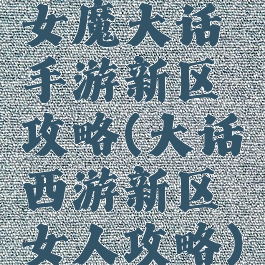 女魔大话
手游新区
攻略(大话
西游新区
女人攻略)